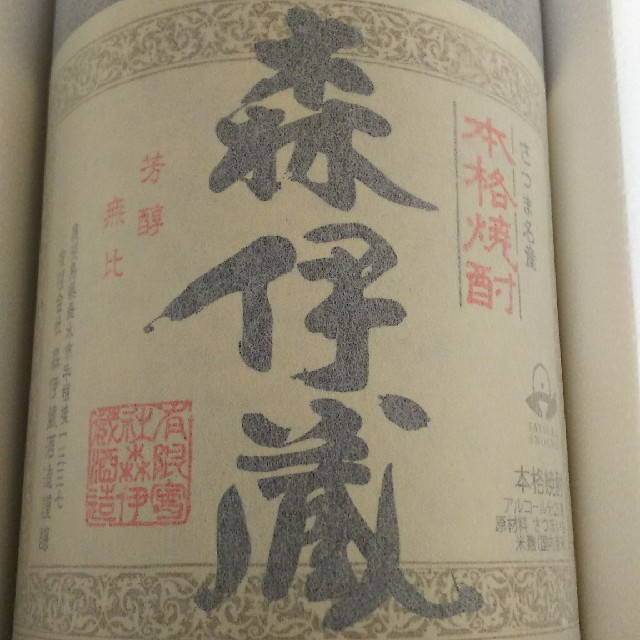 さつま名産
本格焼酎
森伊蔵
芳醇
無比
有限會
社森伊
蔵酒造
本格焼酎
アルコール
原材料 さつまいも
米麹(国産米